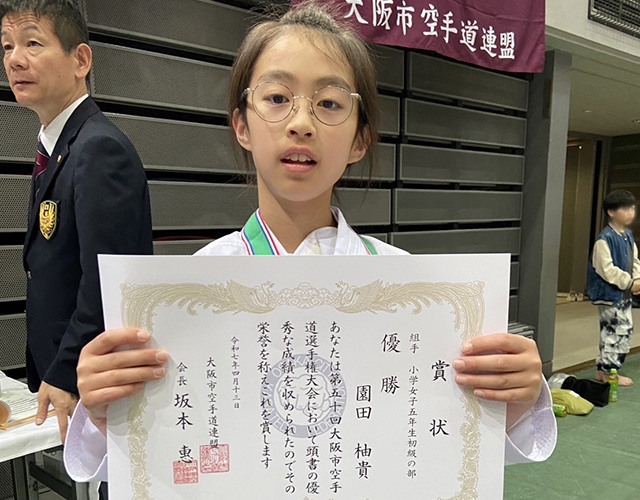 大阪市空手道連盟
賞状
組手 小学女子五年生初級の部
優勝
園田 柚貴
あなたは第五十回大阪市空手
道選手権大会において頭書の優
秀な成績を収められたのでその
栄誉を称えこれを賞します
令和七年四月十三日
大阪市空手道連盟
会長 坂本 惠